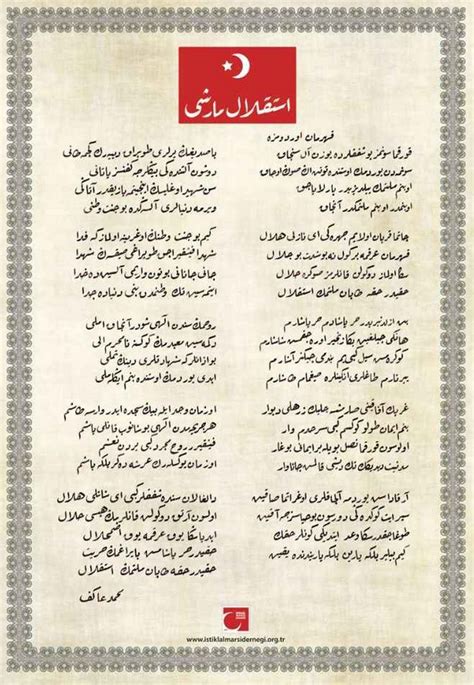 استقلال مارشی
قهرمان اوردومزه
قورقما سونمز بو شفقلرده یوزن آل سنجاق
سونمه‌دن یوردمك اوستنده توتن اك صوك اوجاق
او بنم ملتمك ییلدیزیدر پارلایاجق
او بنمدر او بنم ملتمكدر آنجاق
چاتما قربان اولایم چهره‌كی ای نازلی هلال
قهرمان عرقمه بر گول نه بو شدت بو جلال
سكا اولماز دوكولن قانلرمز صوكره حلال
حقیدر حقه طاپان ملتمك استقلال
بن ازلدنبریدر حر یاشادم حر یاشارم
هانكی چیلغین بكا زنجیر اوره‌جقمش شاشارم
كوكره‌مش سیل كبی‌یم بندمی چیكنر آشارم
ییرتارم طاغلری انكینلره صیغمام طاشارم
غربك آفاقنی صارمشسه چلیك زرهلی دیوار
بنم ایمان طولو كوكسم كبی سرحدم وار
اولوسون قورقما ناصل بویله بر ایمانی بوغار
مدنیت دیدیكك تك دیشی قالمش جاناوار
آرقاداش یوردمه آلچاقلری اوغراتما صاقین
سپر ایت كوكده‌كی دورسون بو حیاسزجه آقین
طوغاجقدر سكا وعد ایتدیكی كونلر حقك
كیم بیلیر بلكه یارین بلكه یاریندنده یقین
باصدیغك یرلری طوپراق دییه‌رك كچمه طانی
دوشون آلتنده‌كی بیكلرجه كفنسز یاتانی
سن شهید اوغلیسك اینجیتمه یازیقدر آتاكی
ویرمه دنیالری آلسه‌كده بو جنت وطنی
كیم بو جنت وطنك اوغرینه اولماز كه فدا
شهدا فیشقیراجق طوپراغی صیقسه‌ك شهدا
جانی جانانی بوتون واریمی آلسین‌ده خدا
ایتمسین تك وطنمدن بنی دنیاده جدا
روحمك سندن الهی شودر آنجاق املی
دكمسین معبدمك كوكسنه نامحرم الی
بو اذانلر كه شهادتلری دینك تملی
ابدی یوردمك اوستنده بنم ایكله‌ملی
او زمان وجد ایله بیك سجده ایدر وارسه طاشم
هر جریحه‌مدن الهی بوشانوب قانلی یاشم
فیشقیریر روح مجرد كبی یردن نعشم
او زمان یوكسله‌رك عرشه دكر بلكه باشم
دالغالان سنده شفقلر كبی ای شانلی هلال
اولسون آرتق دوكولن قانلریمك هپسی حلال
ابدیا سكا یوق عرقمه یوق اضمحلال
حقیدر حر یاشامش بایراغمك حریت
حقیدر حقه طاپان ملتمك استقلال
محمد عاكف
www.istiklalmarsidernegi.org.tr